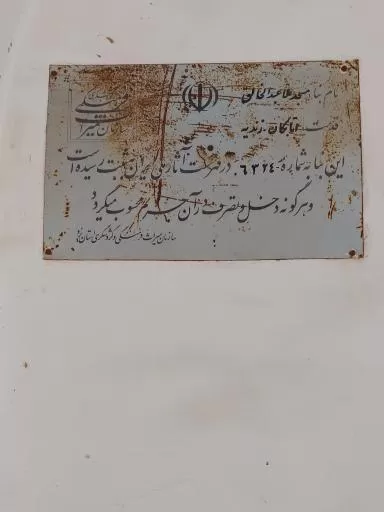 نام بنا: مسجد ملا عبدالخالق
قدمت: ایلخانی - زندیه
این بنا به شماره ۶۳۲۴ در فهرست آثار ملی ایران به ثبت رسیده است
و هرگونه دخل و تصرف در آن جرم محسوب میگردد
سازمان میراث فرهنگی و گردشگری استان یزد